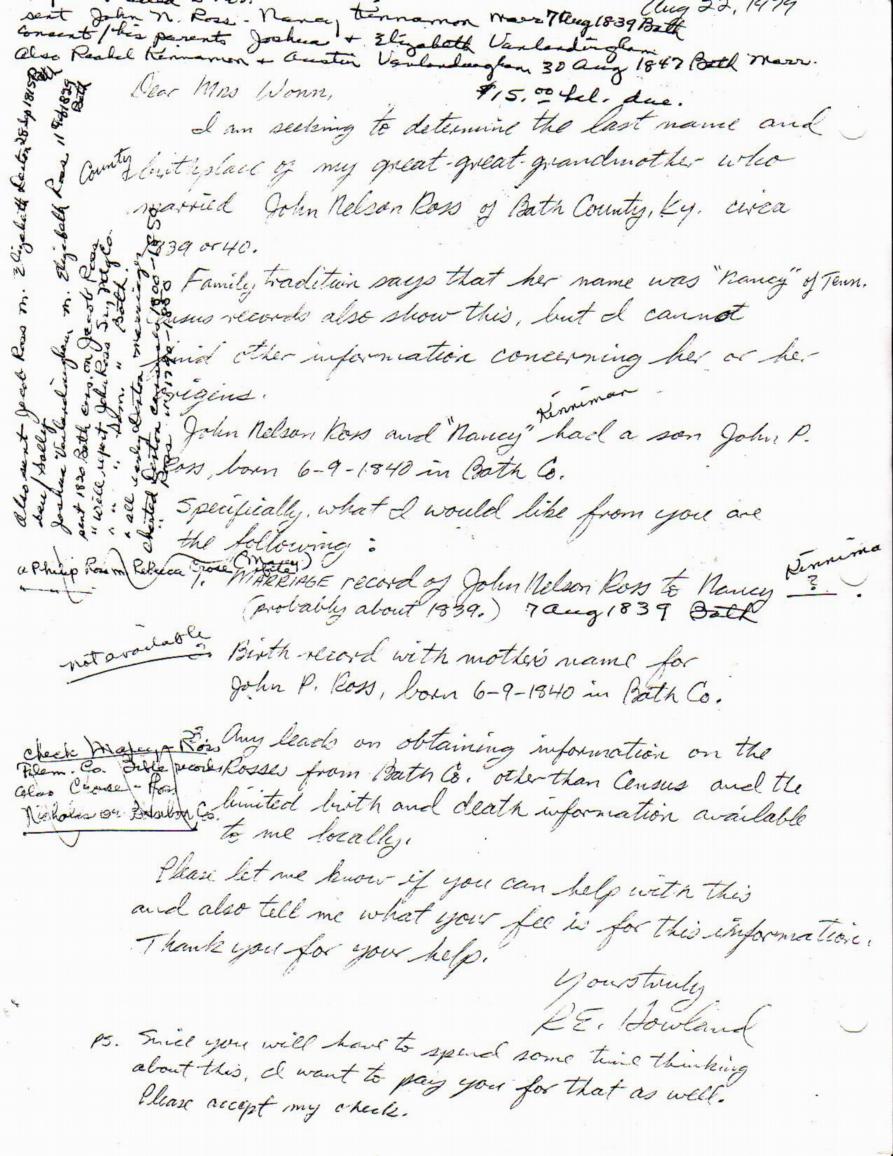 Aug 22, 1979
sent John N. Ross - Nancy Kinnamon marr 7 Aug 1839 Bath
consent / his parents Joshua + Elizabeth Vanlandingham
Also Kinnamon + Austin Vanlandingham 30 Aug 1847 Bath Marr.
Dear Mrs Wonn,
$15.00 bal. due.
I am seeking to determine the last name and
County
birthplace of my great-great-grandmother who
married John Nelson Ross of Bath County, Ky. circa
1839 or 40.
Family tradition says that her name was "Nancy" of Tenn.
Census records also show this, but I cannot
find other information concerning her or her
origins.
Kinniman
John Nelson Ross and "Nancy" had a son John P.
Ross, born 6-9-1840 in Bath Co.
Specifically, what I would like from you are
the following:
1. MARRIAGE record of John Nelson Ross to Nancy Kinnima ?.
(probably about 1839.) 7 Aug 1839 Bath
not available
Birth record with mother's name for
John P. Ross, born 6-9-1840 in Bath Co.
3. Any leads on obtaining information on the
Rosses from Bath Co. other than Census and the
limited birth and death information available
to me locally.
check Ross
Flem. Co. Bible records
also Crouse - Ross
Nicholas or Bourbon Co.
Please let me know if you can help with this
and also tell me what your fee is for this information.
Thank you for your help.
Yours truly
R.E. Howland
PS. Since you will have to spend some time thinking
about this, I want to pay you for that as well.
Please accept my check.
Also sent Jacob Ross m. Elizabeth Denton 28 Sep 1815
Joshua Vanlandingham m. Elizabeth Ross 11 1839 Bath
sent 1820 Bath cens. on Jacob Ross
"Will report John Ross
" " " Bath
+ all early Denton marriages
checked Denton census 1800-1850
" Ross "
a Philip Ross m Rebecca Crose